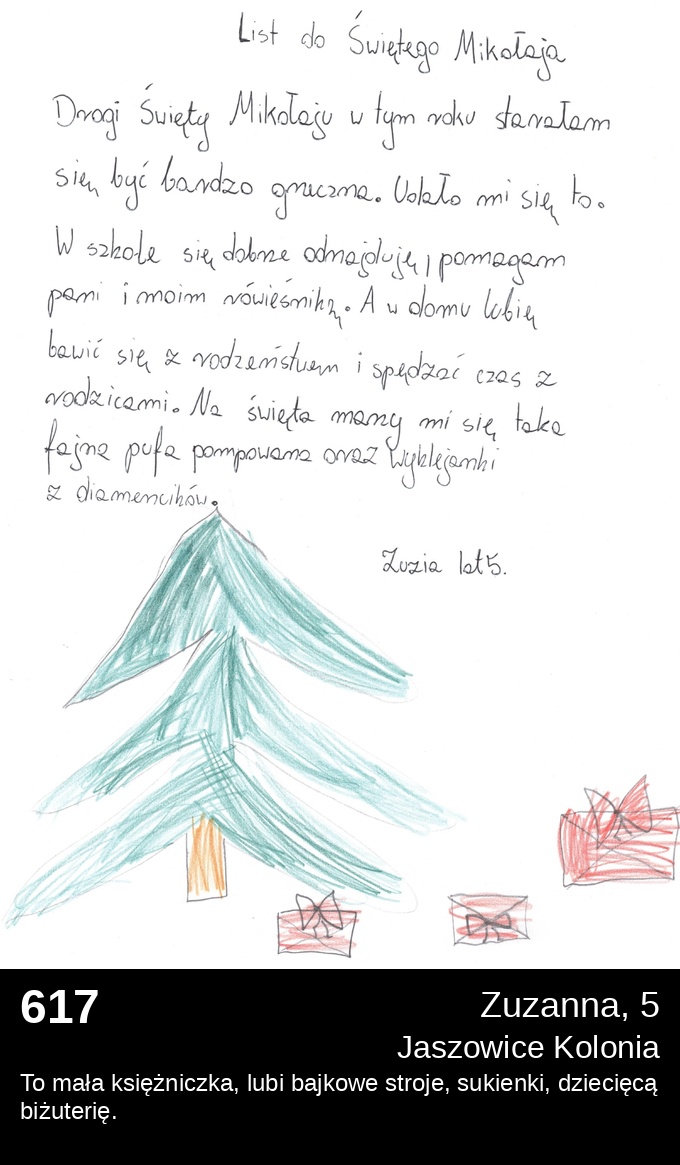 List do Świętego Mikołaja
Drogi Święty Mikołaju w tym roku starałam
się być bardzo grzeczna. Udało mi się to.
W szkole się dobrze odnajduję, pomagam
pani i moim rówieśniką. A w domu lubię
bawić się z rodzeństwem i spędzać czas z
rodzicami. Na święta marzy mi się taka
fajna pufa pompowana oraz wyklejanki
z diamencików.
Zuzia lat 5.
617
Zuzanna, 5
Jaszowice Kolonia
To mała księżniczka, lubi bajkowe stroje, sukienki, dziecięcą
biżuterię.